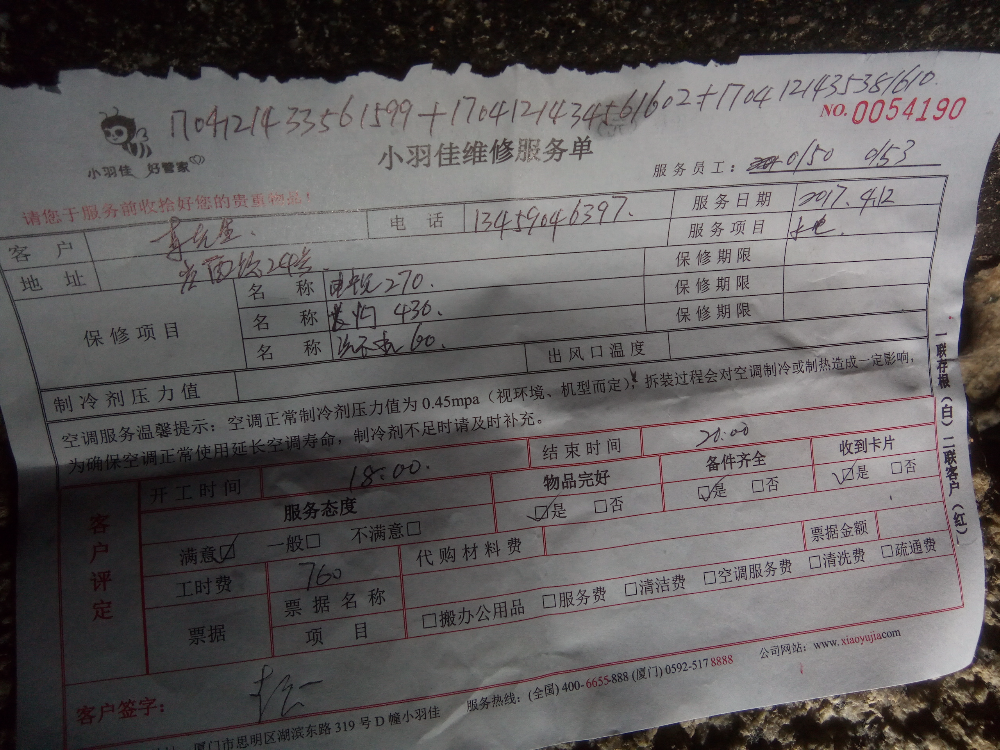 17041214335615​99+1704121434561602+1704121435381610
NO.0054190
小羽佳 好管家
小羽佳维修服务单
服务员工: 0150 0153
请您于服务前收拾好您的贵重物品!
客户 李先生. 电话 13459046397. 服务日期 2017.4.12
地址 服务项目
保修项目 名称 270. 保修期限
名称 430. 保修期限
名称 60. 保修期限
制冷剂压力值 出风口温度
空调服务温馨提示:空调正常制冷剂压力值为 0.45mpa(视环境、机型而定),拆装过程会对空调制冷或制热造成一定影响,
为确保空调正常使用延长空调寿命,制冷剂不足时请及时补充。
客户评定
开工时间 18:00. 结束时间 20:00
服务态度 物品完好 备件齐全 收到卡片
满意☑ 一般□ 不满意□ ☑是 □否 ☑是 □否 ☑是 □否
工时费 760 代购材料费 票据金额
票据 票据名称
项目 □搬办公用品 □服务费 □清洁费 □空调服务费 □清洗费 □疏通费
客户签字:
厦门市思明区湖滨东路 319 号 D 幢小羽佳 服务热线:(全国) 400-6655-888 (厦门) 0592-517 8888 公司网站:www.xiaoyujia.com
一联存根(白)二联客户(红)